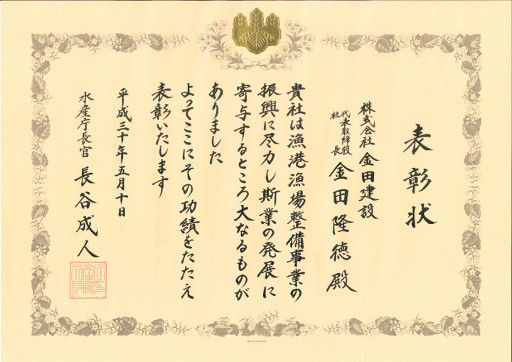 表彰状
株式会社 金田建設
代表取締役
社長 金田隆徳殿
貴社は漁港漁場整備事業の
振興に尽力し斯業の発展に
寄与するところ大なるものが
ありました
よってここにその功績をたたえ
表彰いたします
平成三十年五月十日
水産庁長官 長谷成人